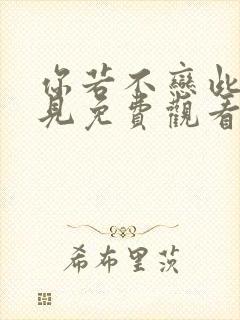 你若不戀此
見免費觀看
希布里茨